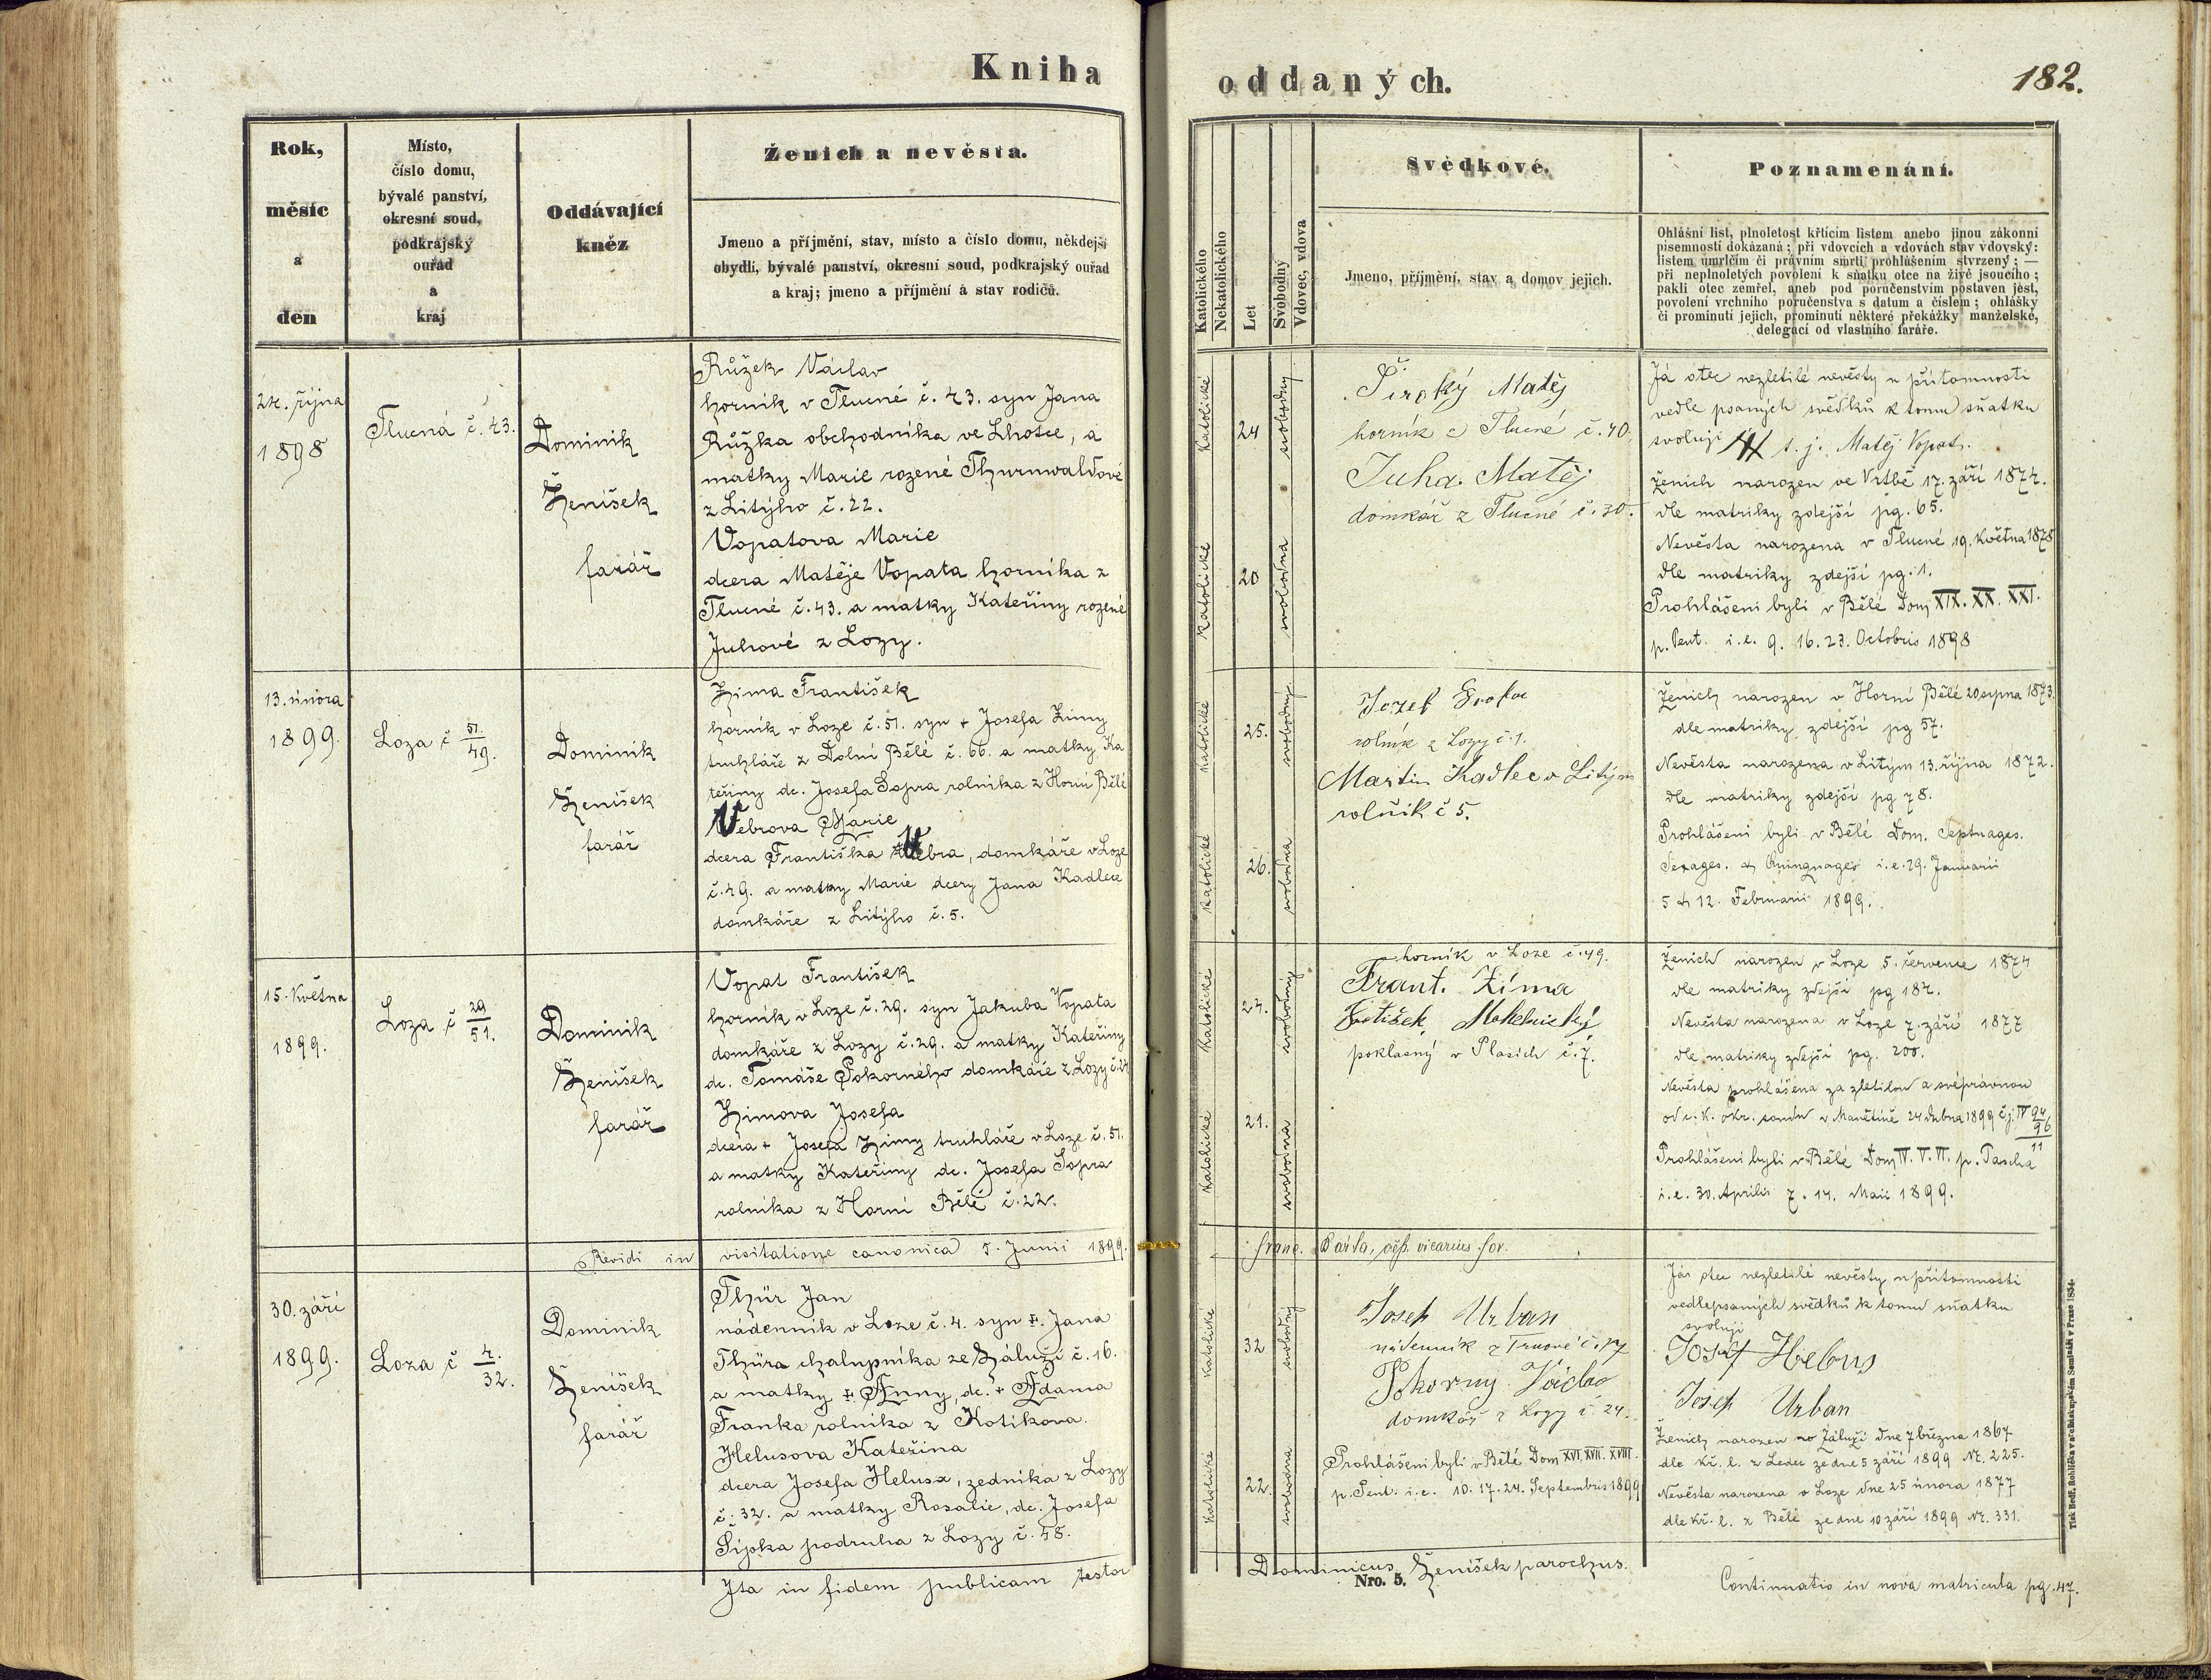 Kniha
oddaných.
182.
Rok,
měsíc
a
den
Místo,
číslo domu,
bývalé panství,
okresní soud,
podkrajský
ouřad
a
kraj
Oddávající
kněz
Ženich a nevěsta.
Jmeno a příjmění, stav, místo a číslo domu, někdejší
obydlí, bývalé panství, okresní soud, podkrajský ouřad
a kraj; jmeno a příjmění a stav rodičů.
Katolického
Nekatolického
Let
Svobodný
Vdovec, vdova
Svědkové.
Jmeno, příjmění, stav a domov jejich.
Poznamenání.
Ohlášní list, plnoletost křtícím listem anebo jinou zákonní
písemností dokázaná; při vdovcích a vdovách stav vdovský:
listem úmrlčím či právním smrti prohlášením stvrzený; —
při neplnoletých povolení k sňatku otce na živě jsoucího;
pakli otec zemřel, aneb pod poručenstvím postaven jest,
povolení vrchního poručenstva s datum a číslem; ohlášky
či prominutí jejich, prominutí některé překážky manželské,
delegací od vlastního faráře.
24. října
1898
Tlucná č. 43.
Dominik
Ženíšek
farář
Růžek Václav
horník v Tlucné č. 43. syn Jana
Růžka obchodníka ve Lhotce, a
matky Marie rozené Thurnwaldové
z Litýho č. 22.
Vopatova Marie
dcera Matěje Vopata horníka z
Tlucné č. 43. a matky Kateřiny rozené
Juhové z Lozy.
Katolické
24
svobodný
Katolické
20
svobodna
Široký Matěj
horník z Tlucné č. 40.
Juha Matěj
domkář z Tlucné č. 30.
Já otec nezletilé nevěsty u přítomnosti
vedle psaných svědků k tomu sňatku
svoluji s. j. Matěj Vopat.
Ženich narozen ve Vrtbě 17. září 1874.
dle matriky zdejší pg. 65.
Nevěsta narozena v Tlucné 19. května 1878
dle matriky zdejší pg. 1.
Prohlášeni byli v Bělé Dom XIX. XX. XXI.
p. Pent. i. e. 9. 16. 23. Octobris 1898
13. února
1899.
Loza č 51./49.
Dominik
Ženíšek
farář
Zima František
horník v Loze č. 51. syn + Josefa Zimy
truhláře z Dolní Bělé č. 66. a matky Ka
teřiny dc. Josefa Sopra rolníka z Horní Bělé
Vebrova Marie
dcera Františka Vebra, domkáře v Loze
č. 49. a matky Marie dcery Jana Kadlece
domkáře z Litýho č. 5.
Katolické
25.
svobodný.
Katolické
26.
svobodna
Jozef
rolník z Lozy č. 1.
Martin Kadlec v Litým
rolník č 5.
Ženich narozen v Horní Bělé 20 srpna 1873.
dle matriky zdejší pg 57.
Nevěsta narozena v Litým 13. října 1872.
dle matriky zdejší pg 78.
Prohlášeni byli v Bělé Dom. Septuages.
Sexages. & Quinquages i. e. 29. Januarii
5 & 12. Februarii 1899.
15. května
1899.
Loza č 29/51.
Dominik
Ženíšek
farář
Vopat František
horník v Loze č. 29. syn Jakuba Vopata
domkáře z Lozy č. 29. a matky Kateřiny
dc. Tomáše Pokorného domkáře z Lozy č. 24
Zimova Josefa
dcera + Josefa Zimy truhláře v Loze č. 51.
a matky Kateřiny dc. Josefa Sopra
rolníka z Horní Bělé č. 22.
Katolické
24.
svobodný
Katolické
21.
svobodna
horník v Loze č. 49.
Frant. Zíma
poklasný v Plasích č. 7.
Ženich narozen v Loze 5. července 1874
dle matriky zdejší pg 184.
Nevěsta narozena v Loze 7. září 1877
dle matriky zdejší pg. 200.
Nevěsta prohlášena za zletilou a svéprávnou
od c. k. okr. soudu v Manětíně 24 dubna 1899 č. j. IV 94/96/11
Prohlášeni byli v Bělé Dom IV. V. VI. p. Pascha
i. e. 30. Aprilis 7. 14. Maii 1899.
Revidi in visitatione canonica 5. Junii 1899.
Franc. Bárta, vicarius for.
30. září
1899.
Loza č 4./32.
Dominik
Ženíšek
farář
Thür Jan
nádenník v Loze č. 4. syn +. Jana
Thüra chalupníka ze Záluží č. 16.
a matky +. Anny, dc. + Adama
Franka rolníka z Kotíkova.
Helusova Kateřina
dcera Josefa Helusa, zedníka z Lozy
č. 32. a matky Rosalie, dc. Josefa
Šípka podruha z Lozy č. 48.
Katolické
32
svobodný
Katolické
22.
svobodna
Josef Urban
nádenník
Pokorny
domkář z Lozy č. 24.
Prohlášeni byli v Bělé Dom XVI. XVII. XVIII.
p. Pent. i. e. 10. 17. 24. Septembris 1899
Já otec nezletilé nevěsty u přítomnosti
vedlepsaných svědků k tomu sňatku
svoluji
Josef Helus
Josef Urban
Ženich narozen v Záluží dne 7 března 1867
dle kř. l. z Ledec ze dne 5 září 1899 Nr. 225.
Nevěsta narozena v Loze dne 25 února 1877
dle kř. l. z Bělé ze dne 10 září 1899 Nr. 331.
Ita in fidem publicam testor
Dominicus Ženíšek parochus.
Nro. 5.
Continuatio in nova matricula pg. 47.
Tisk Bedř. Rohlíčka v arcibiskupském Semináři v Praze 1854.